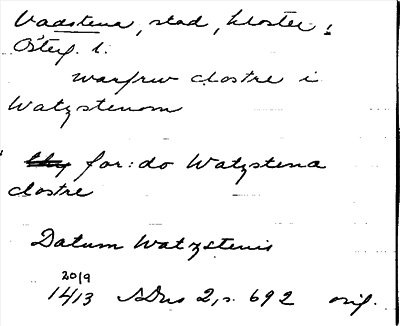 Vadstena, stad, kloster;
Österg. l.
warfrw clostre i
Watzstenom
for: do Watzstena
clostre
Datum Watzstenis
20/9
1413 SDns 2, s. 692 orig.